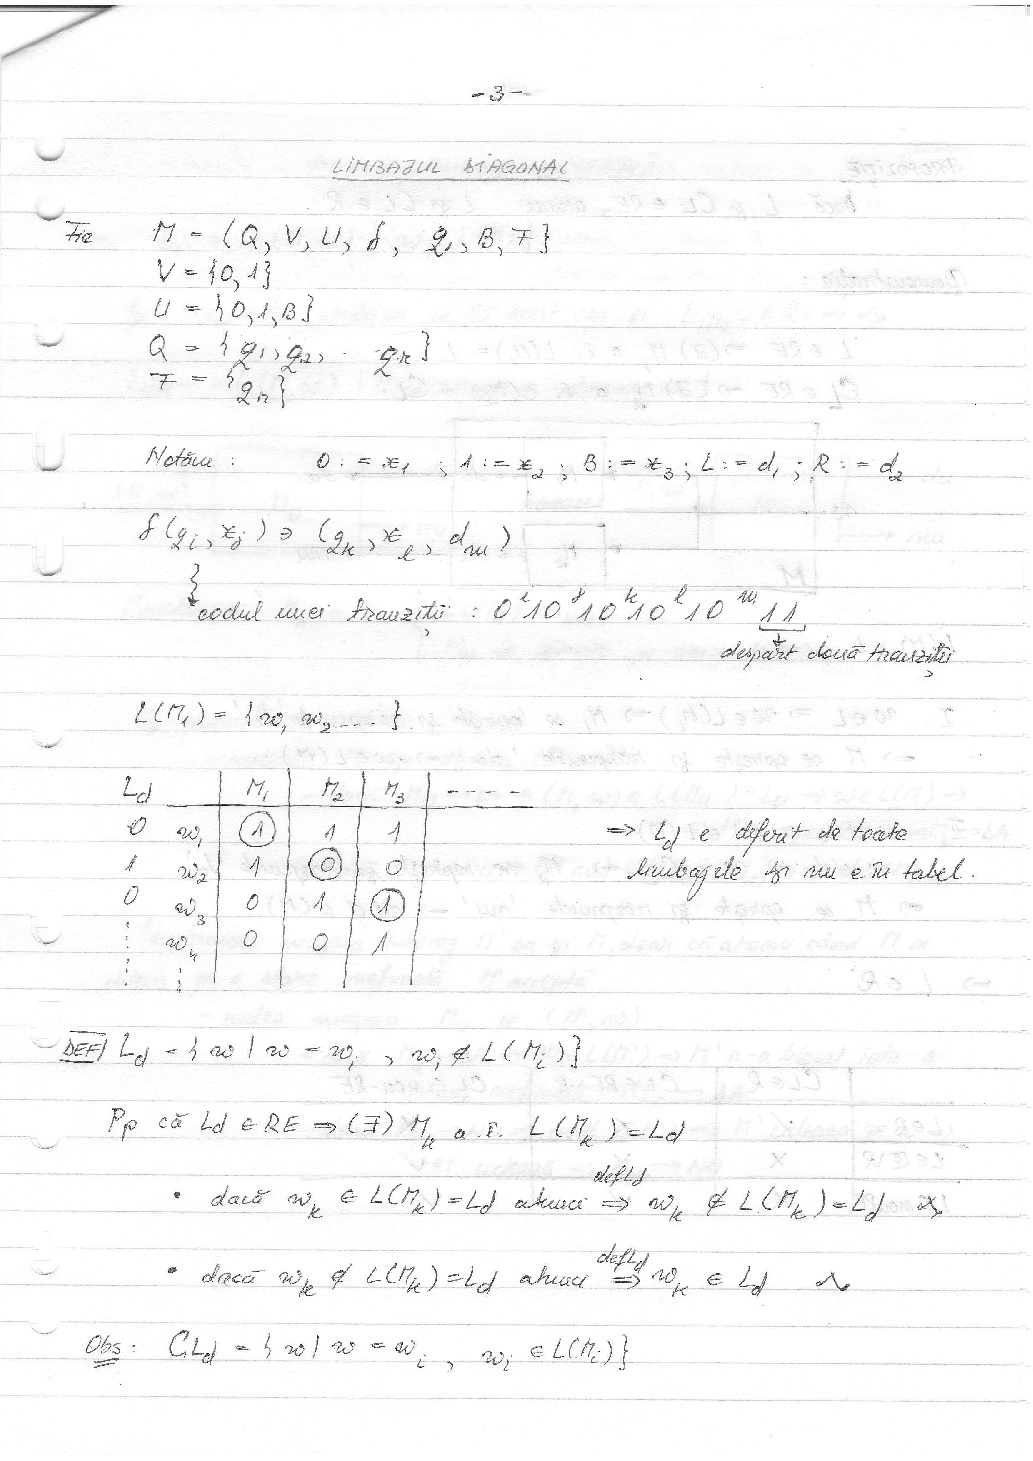 -3-
LIMBAJUL DIAGONAL
Fie M = (Q, V, U, δ, q₁, B, F}
V = {0, 1}
U = {0, 1, B}
Q = {q₁, q₂, . q_n}
F = {q_n}
Notăm : 0 := x₁ ; 1 := x₂ ; B := x₃ ; L := d₁ ; R := d₂
δ(q_i, x_j) ∋ (q_k, x_l, d_m)
codul unei tranziții : 0^i 1 0^j 1 0^k 1 0^l 1 0^m 11
despart două tranziții
L(M₁) = {w₁ w₂ ....}
L_d M₁ M₂ M₃ ----
0 w₁ 1 1 1 ⇒ L_d e diferit de toate
1 w₂ 1 0 0 limbajele și nu e în tabel.
0 w₃ 0 1 1
⋮ w₄ 0 0 1
⋮ ⋮
DEF/ L_d = {w | w = w_i , w_i ∉ L(M_i)}
Pp că L_d ∈ RE ⇒ (∃) M_k a.î. L(M_k) = L_d
• dacă w_k ∈ L(M_k) = L_d atunci ⇒ (def L_d) w_k ∉ L(M_k) = L_d
• dacă w_k ∉ L(M_k) = L_d atunci ⇒ (def L_d) w_k ∈ L_d
Obs : CL_d = {w | w = w_i , w_i ∈ L(M_i)}